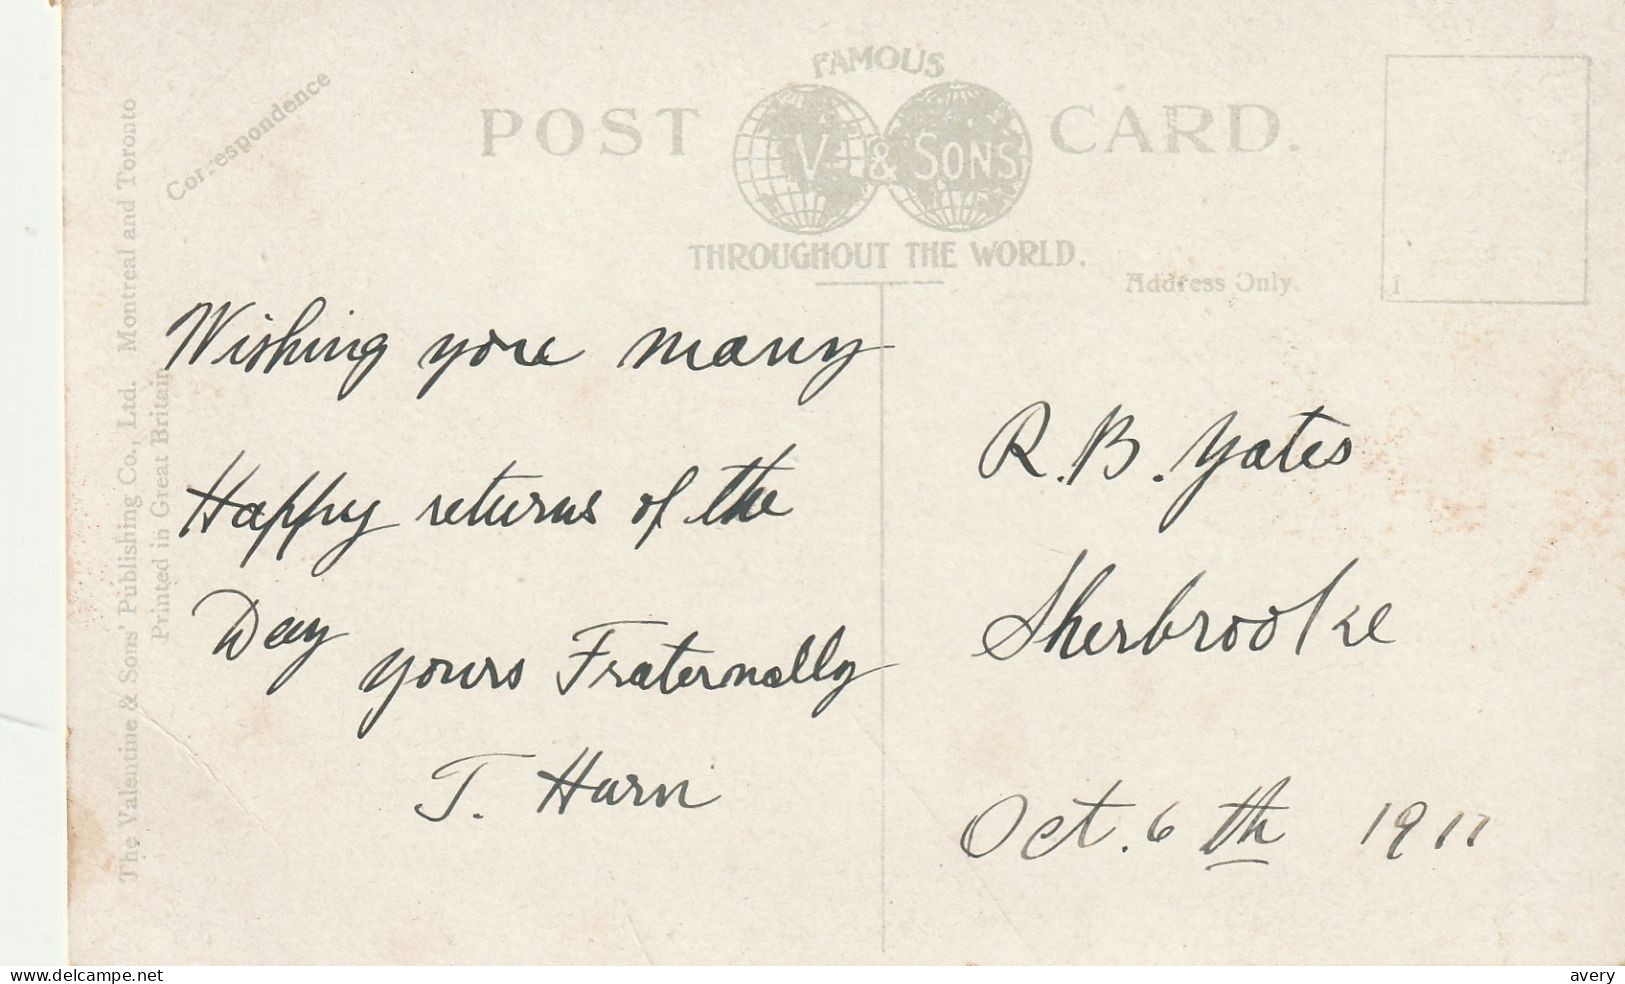 FAMOUS
POST CARD.
V. & SONS
THROUGHOUT THE WORLD.
Correspondence
Address Only.
1
The Valentine & Sons' Publishing Co., Ltd. Montreal and Toronto
Printed in Great Britain
Wishing you many
Happy returns of the
Day
yours Fraternally
T. Harn
R. B. Yates
Sherbrooke
Oct. 6th 1911
www.delcampe.net
avery